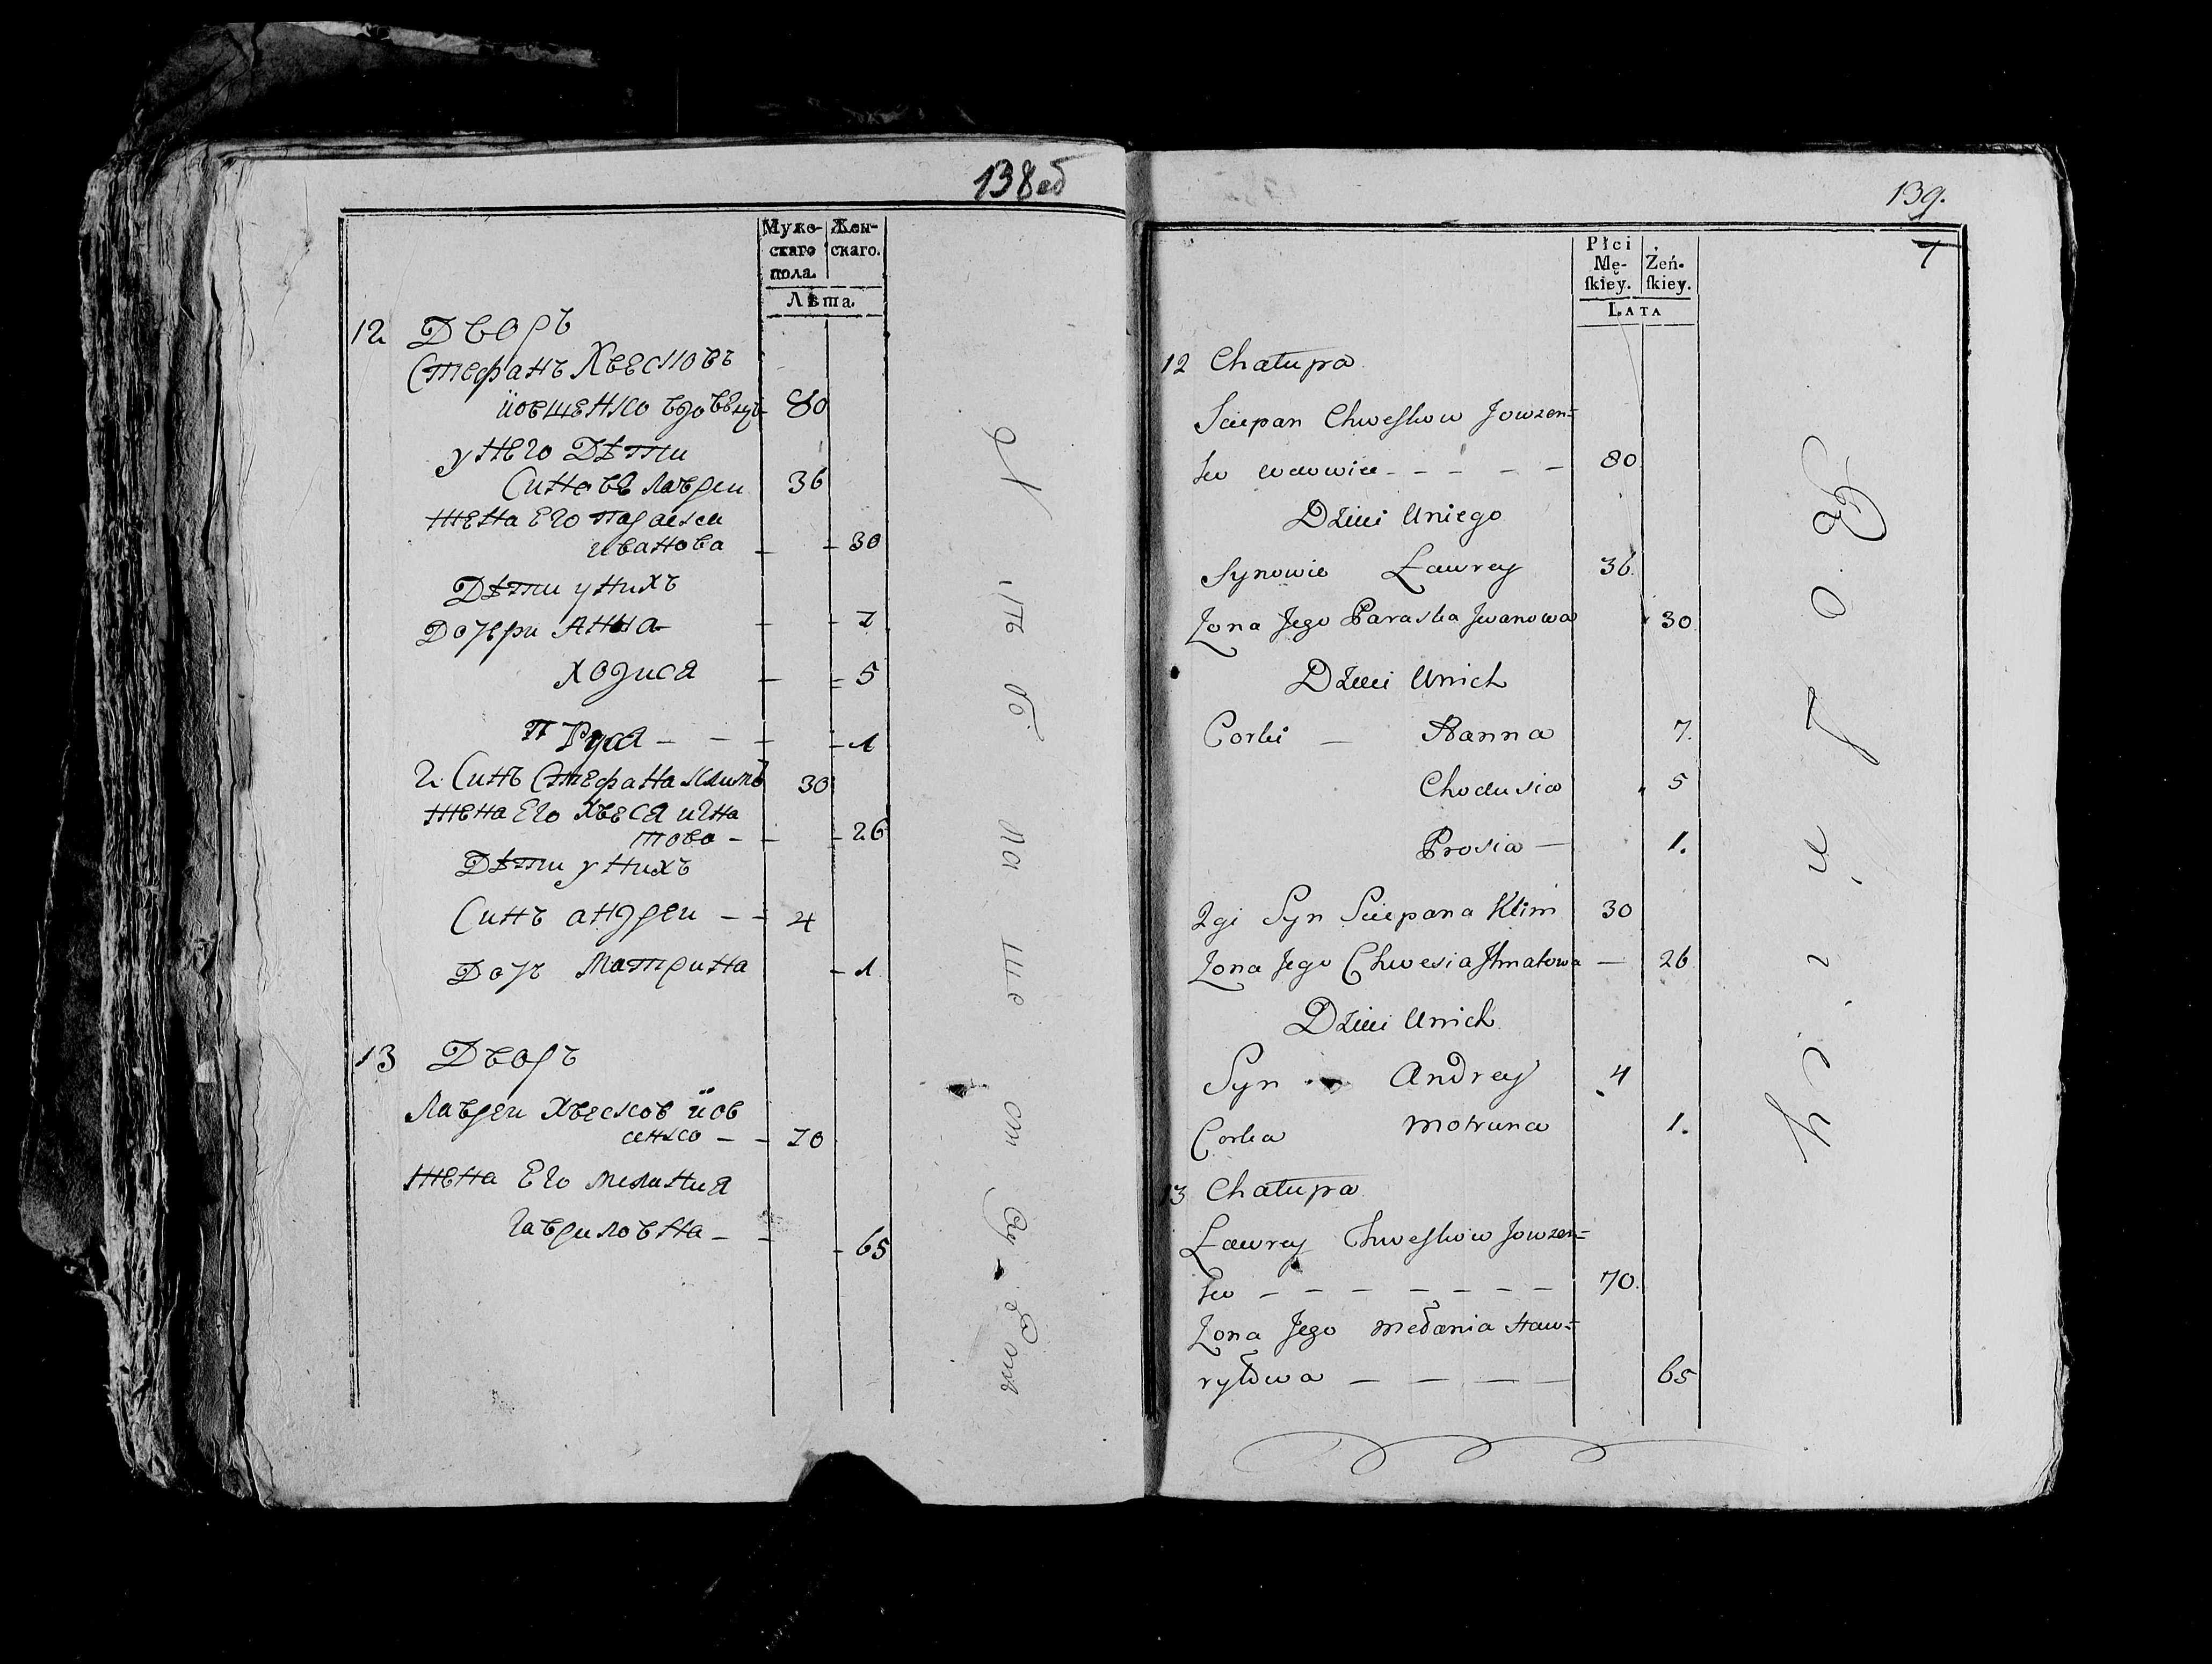 138об
Муже-
скаго
пола.
Жен-
скаго.
Лѣта.
12 Дворъ
Стефанъ Хвесковъ
Іовщенко вдовецъ 80
у него Дѣти
Синовѣ Лаврен 36
жена Его Параска
Иванова - - 30
Дѣти у нихъ
Дочери Анна - - 7
Ходися - - 5
Пруся - - - - 1
2 Синъ Стефана Климъ 30
жена Его Хвеся Игна
това - - - 26
Дѣти у нихъ
Синъ андрен - - 4
Дочь Матрина - 1
13 Дворъ
Лаврен Хвесков Іов
сенко - - 70
жена Его Мелания
гавриловна - - - 65
139.
7
Płci
Mę-
ſkiey.
Żeń-
ſkiey.
LATA
12 Chałupa
Sciepan Chweſkow Jowzen=
ko wdowiec - - - - - 80
Dzieci Uniego
Synowie Ławrey 36.
Zona Jego Paraska Jwanowa 30
Dzieci Unich
Corki - Hanna 7.
Chodusia 5
Prosia - 1.
2gi Syn Sciepana Klim 30
Zona Jego Chwesia Jhnatowa - 26
Dzieci Unich
Syn Andrey 4
Corka Motruna 1.
13 Chałupa
Ławrey Chweſkow Jowzen=
ko - - - - - - - 70.
Zona Jego Mełania Haw=
ryłowa - - - - 65